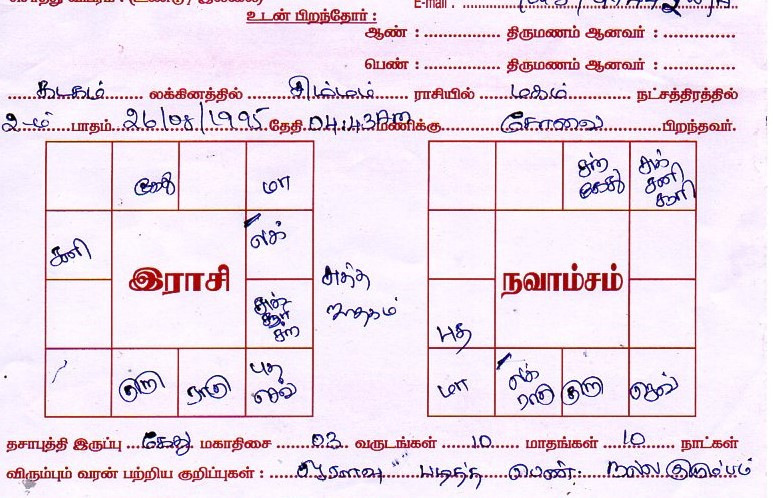 உடன் பிறந்தோர் :
E-mail :
ஆண் : .............. திருமணம் ஆனவர் : ..............
பெண் : .............. திருமணம் ஆனவர் : ..............
கடகம் லக்கினத்தில் சிம்மம் ராசியில் மகம் நட்சத்திரத்தில்
2-ம் பாதம் 26/08/1995 தேதி 04:43 AM மணிக்கு கோவை பிறந்தவர்.
கேது மா
சனி லக்
இராசி
சுக் சூரி சந்
குரு ராகு புத செவ்
சந் கேது சுக் சனி சூரி
நவாம்சம்
புத
மா லக் ராகு குரு செவ்
சுத்த ஜாதகம்
தசாபுத்தி இருப்பு கேது மகாதிசை 03 வருடங்கள் 10 மாதங்கள் 10 நாட்கள்
விரும்பும் வரன் பற்றிய குறிப்புகள் : ஓரளவு படித்த பெண். நல்ல குடும்பம்